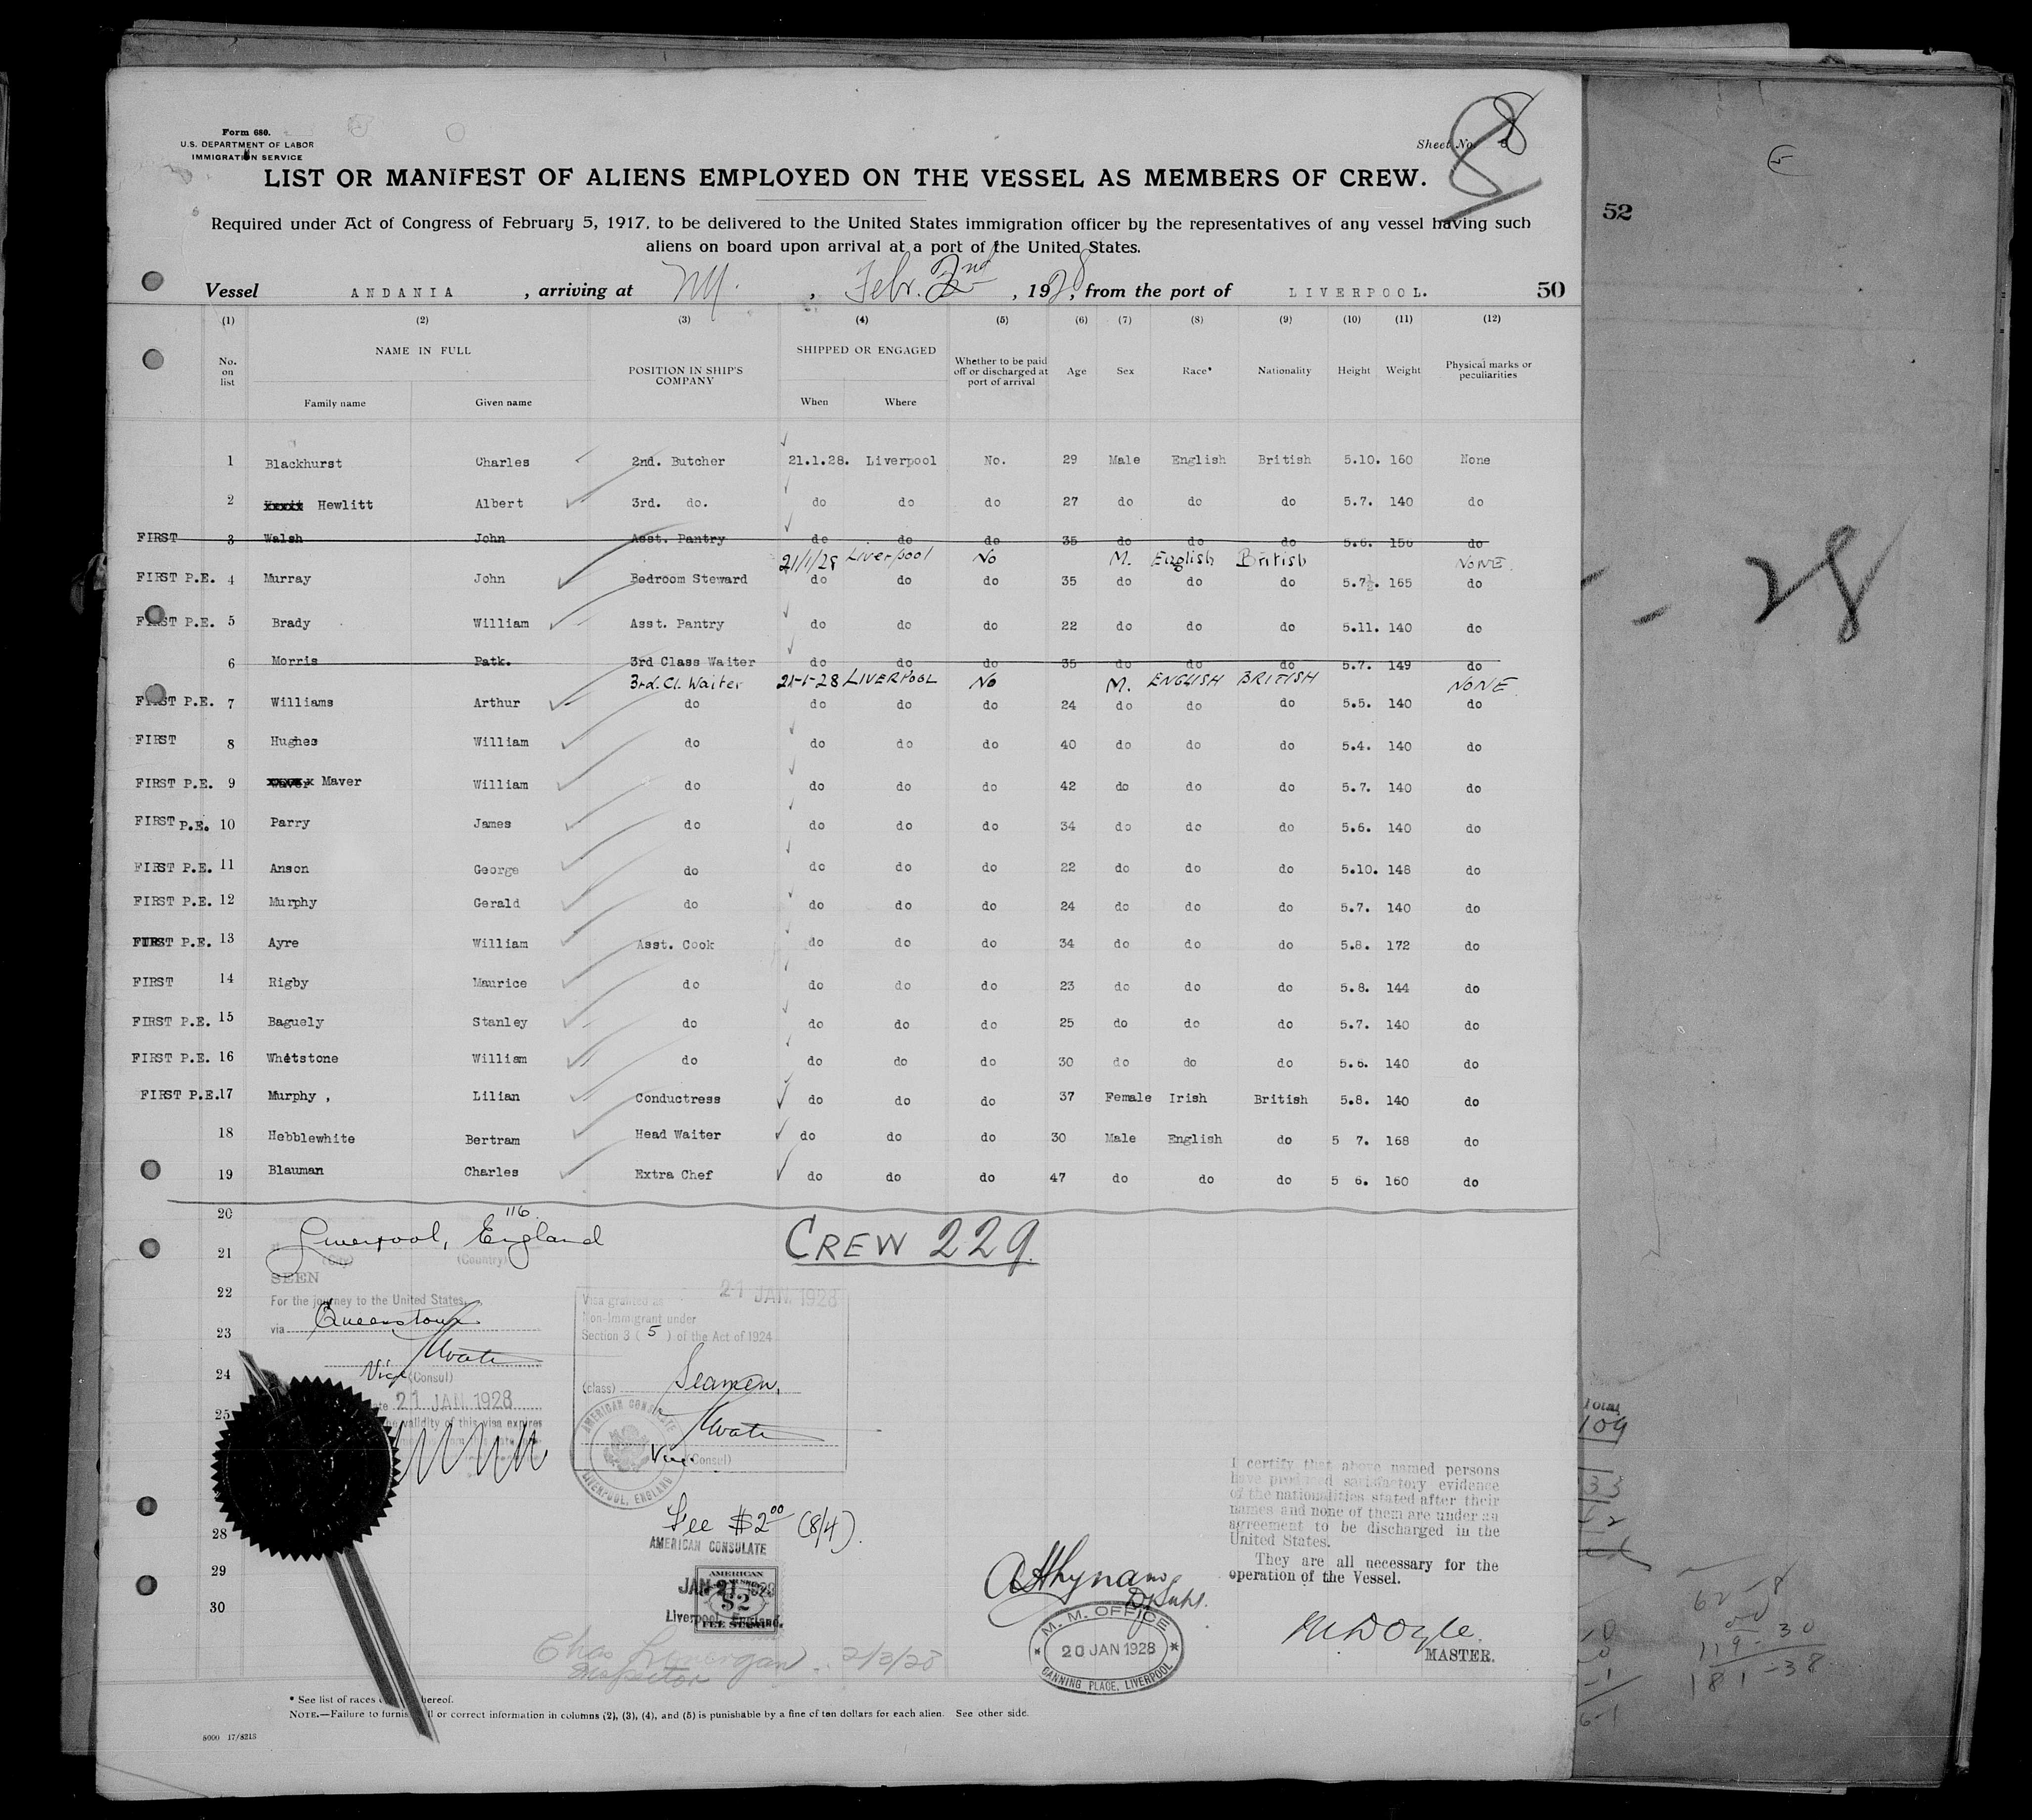 Form 680.
U.S. DEPARTMENT OF LABOR
IMMIGRATION SERVICE
Sheet No. 8
8
LIST OR MANIFEST OF ALIENS EMPLOYED ON THE VESSEL AS MEMBERS OF CREW.
Required under Act of Congress of February 5, 1917, to be delivered to the United States immigration officer by the representatives of any vessel having such
aliens on board upon arrival at a port of the United States.
Vessel ANDANIA, arriving at NY., Febr. 2nd, 1928, from the port of LIVERPOOL. 50
(1) (2) (3) (4) (5) (6) (7) (8) (9) (10) (11) (12)
No. on list NAME IN FULL POSITION IN SHIP'S COMPANY SHIPPED OR ENGAGED Whether to be paid off or discharged at port of arrival Age Sex Race* Nationality Height Weight Physical marks or peculiarities
Family name Given name When Where
1 Blackhurst Charles 2nd. Butcher 21.1.28. Liverpool No. 29 Male English British 5.10. 160 None
2 Hewlitt Albert 3rd. do. do do do 27 do do do 5.7. 140 do
FIRST 3 Walsh John Asst. Pantry do do do 35 do do do 5.6. 156 do
21/1/28 Liverpool No M. English British NONE.
FIRST P.E. 4 Murray John Bedroom Steward do do do 35 do do do 5.7½. 165 do
FIRST P.E. 5 Brady William Asst. Pantry do do do 22 do do do 5.11. 140 do
6 Morris Patk. 3rd Class Waiter do do do 35 do do do 5.7. 149 do
3rd. Cl. Waiter 21-1-28 LIVERPOOL No M. ENGLISH BRITISH NONE.
FIRST P.E. 7 Williams Arthur do do do do 24 do do do 5.5. 140 do
FIRST 8 Hughes William do do do do 40 do do do 5.4. 140 do
FIRST P.E. 9 Maver William do do do do 42 do do do 5.7. 140 do
FIRST P.E. 10 Parry James do do do do 34 do do do 5.6. 140 do
FIRST P.E. 11 Anson George do do do do 22 do do do 5.10. 148 do
FIRST P.E. 12 Murphy Gerald do do do do 24 do do do 5.7. 140 do
FIRST P.E. 13 Ayre William Asst. Cook do do do 34 do do do 5.8. 172 do
FIRST 14 Rigby Maurice do do do do 23 do do do 5.8. 144 do
FIRST P.E. 15 Baguely Stanley do do do do 25 do do do 5.7. 140 do
FIRST P.E. 16 Whetstone William do do do do 30 do do do 5.6. 140 do
FIRST P.E. 17 Murphy , Lilian Conductress do do do 37 Female Irish British 5.8. 140 do
18 Hebblewhite Bertram Head Waiter do do do 30 Male English do 5 7. 168 do
19 Blauman Charles Extra Chef do do do 47 do do do 5 6. 160 do
20
116.
21 Liverpool, England
(City) (Country)
CREW 229.
SEEN
22 For the journey to the United States,
via Queenstown
23
24
Vice (Consul)
21 JAN 1928
25 validity of this visa expires
Visa granted as 21 JAN. 1928
Non-Immigrant under
Section 3 ( 5 ) of the Act of 1924
(class) Seamen.
Vice (Consul)
AMERICAN CONSULATE
LIVERPOOL, ENGLAND
28
29
30
Fee $2.00 (8/4).
AMERICAN CONSULATE
JAN 21 1928
Liverpool, England.
AMERICAN
$2
FEE STAMP
Chas Lonergan. 2/3/28
Inspector
M. M. OFFICE
20 JAN 1928
CANNING PLACE, LIVERPOOL
I certify that above named persons
have produced satisfactory evidence
of the nationalities stated after their
names and none of them are under an
agreement to be discharged in the
United States.
They are all necessary for the
operation of the Vessel.
M Doyle.
MASTER.
* See list of races hereof.
NOTE.—Failure to furnish or correct information in columns (2), (3), (4), and (5) is punishable by a fine of ten dollars for each alien. See other side.
5000 17/8213
52
28
Total
109
33
62 - 8
119 - 30
181 - 38